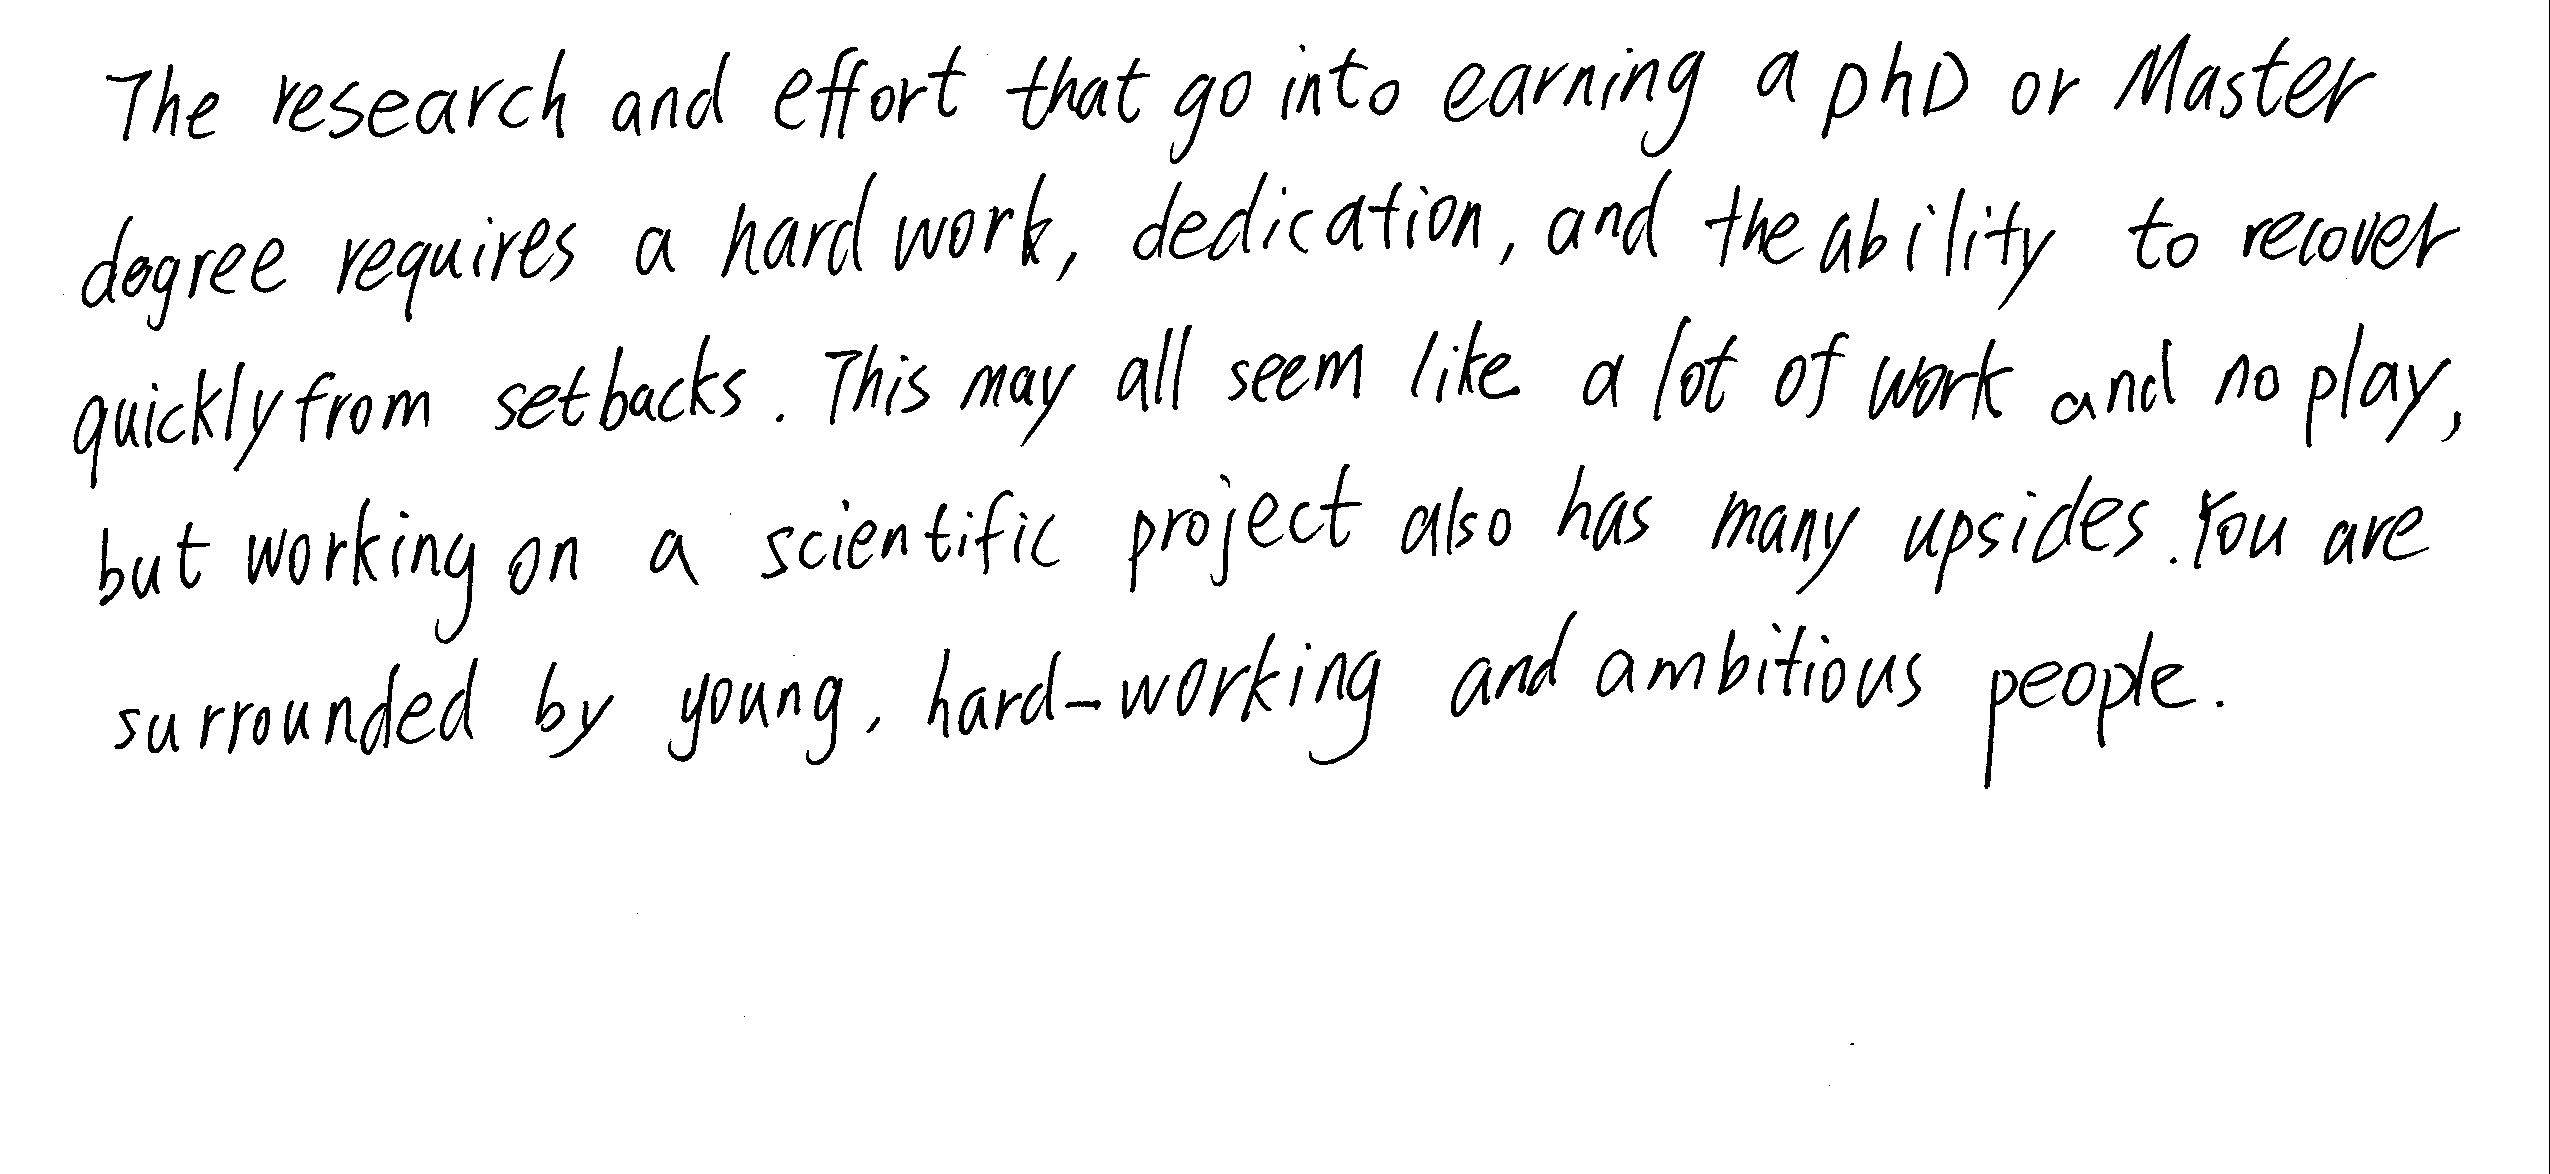 The research and effort that go into earning a phD or Master
degree requires a hard work, dedication, and the ability to recover
quickly from setbacks. This may all seem like a lot of work and no play,
but working on a scientific project also has many upsides. You are
surrounded by young, hard-working and ambitious people.